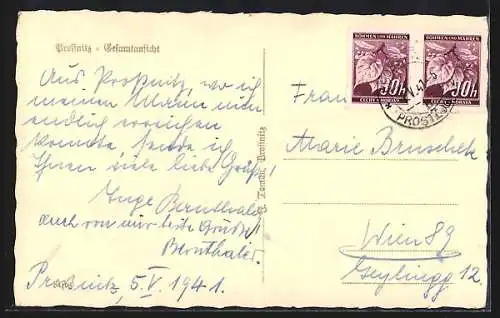 Proßnitz - Gesamtansicht
Aus Proßnitz, wo ich
meinen Mann nun
endlich erreichen
konnte, sende ich
Ihnen viele liebe Grüße!
Inge Bernthaler
auch von mir beste Grüße
Bernthaler
Proßnitz, 5. V. 1941.
Proßnitz
BÖHMEN UND MÄHREN
30h
ČECHY A MORAVA
BÖHMEN UND MÄHREN
30h
ČECHY A MORAVA
PROSTĚJ
Frau
Marie Bruschek
Wien 89
12.